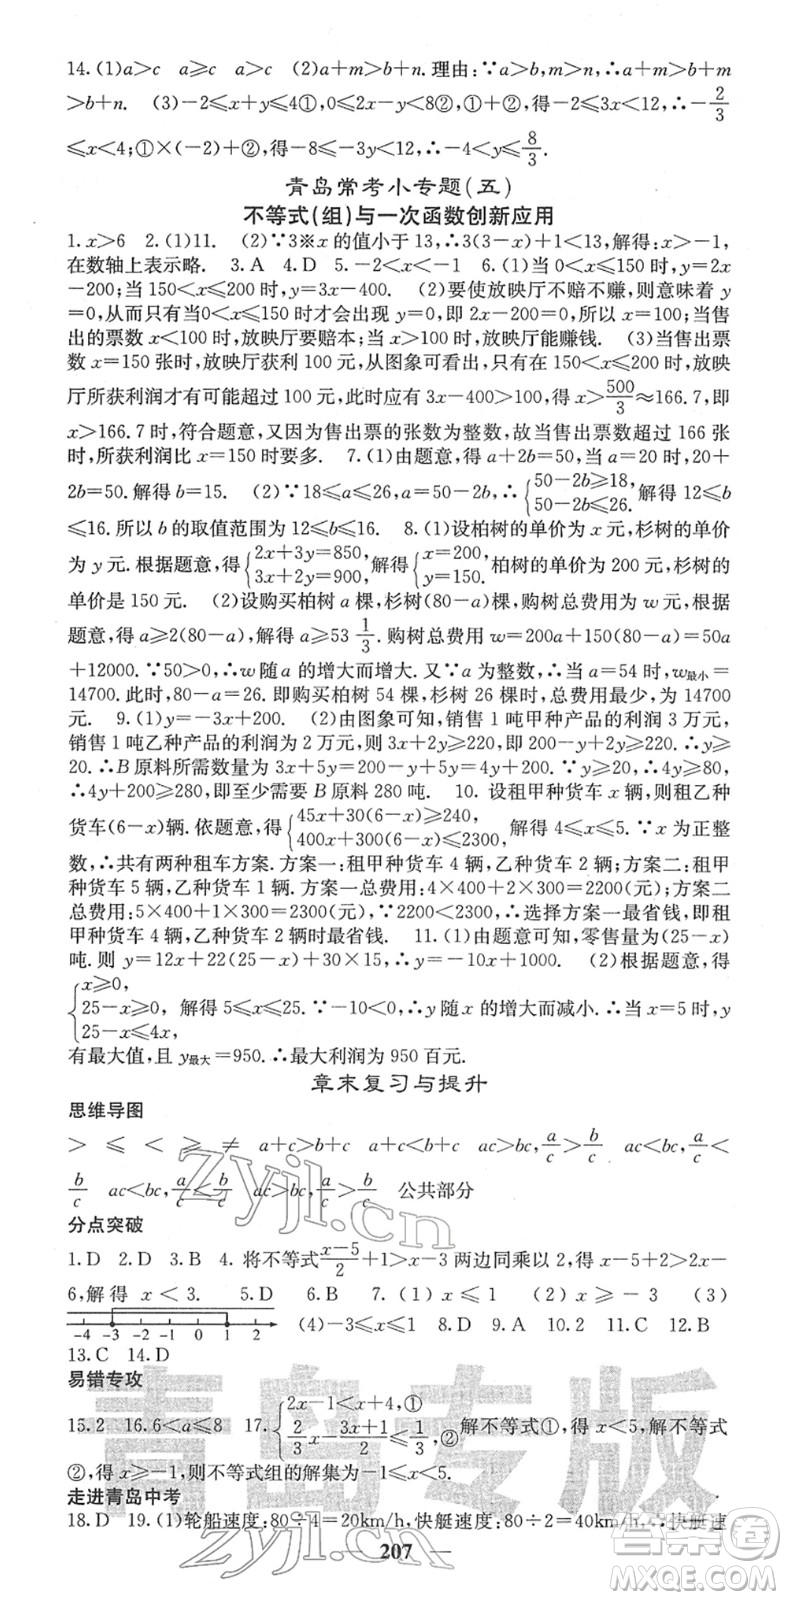 14.(1)a>c　a⩾c　a>c　(2)a+m>b+n.理由:∵a>b,m>n,∴a+m>b+m
>b+n.　(3)-2⩽x+y⩽4①,0⩽2x-y<8②,①+②,得-2⩽3x<12,∴-2/3
⩽x<4;①×(-2)+②,得-8⩽-3y<12,∴-4<y⩽8/3.
青岛常考小专题(五)
不等式(组)与一次函数创新应用
1.x>6　2.(1)11.　(2)∵3※x的值小于13,∴3(3-x)+1<13,解得:x>-1,
在数轴上表示略.　3.A　4.D　5.-2<x<-1　6.(1)当0<x⩽150时,y=2x
-200;当150<x⩽200时,y=3x-400.　(2)要使放映厅不赔不赚,则意味着y
=0,从而只有当0<x⩽150时才会出现y=0,即2x-200=0,所以x=100;当售
出的票数x<100时,放映厅要赔本;当x>100时,放映厅能赚钱.　(3)当售出票
数x=150张时,放映厅获利100元,从图象可看出,只有在150<x⩽200时,放映
厅所获利润才有可能超过100元,此时应有3x-400>100,得x>500/3≈166.7,即
x>166.7时,符合题意,又因为售出票的张数为整数,故当售出票数超过166张
时,所获利润比x=150时要多.　7.(1)由题意,得a+2b=50,当a=20时,20+
2b=50.解得b=15.　(2)∵18⩽a⩽26,a=50-2b,∴{50-2b⩾18, 50-2b⩽26.解得12⩽b
⩽16.所以b的取值范围为12⩽b⩽16.　8.(1)设柏树的单价为x元,杉树的单价
为y元.根据题意,得{2x+3y=850, 3x+2y=900,解得{x=200, y=150.柏树的单价为200元,杉树的
单价是150元.　(2)设购买柏树a棵,杉树(80-a)棵,购树总费用为w元,根据
题意,得a⩾2(80-a),解得a⩾53 1/3.购树总费用w=200a+150(80-a)=50a
+12000.∵50>0,∴w随a的增大而增大.又∵a为整数,∴当a=54时,w最小=
14700.此时,80-a=26.即购买柏树54棵,杉树26棵时,总费用最少,为14700
元.　9.(1)y=-3x+200.　(2)由图象可知,销售1吨甲种产品的利润3万元,
销售1吨乙种产品的利润为2万元,则3x+2y⩾220,即-y+2y⩾220.∴y⩾
20.∴B原料所需数量为3x+5y=200-y+5y=4y+200.∵y⩾20.∴4y⩾80,
∴4y+200⩾280,即至少需要B原料280吨.　10.设租甲种货车x辆,则租乙种
货车(6-x)辆.依题意,得{45x+30(6-x)⩾240, 400x+300(6-x)⩽2300,解得4⩽x⩽5.∵x为正整
数,∴共有两种租车方案.方案一:租甲种货车4辆,乙种货车2辆;方案二:租甲
种货车5辆,乙种货车1辆.方案一总费用:4×400+2×300=2200(元);方案二
总费用:5×400+1×300=2300(元),∵2200<2300,∴选择方案一最省钱,即租
甲种货车4辆,乙种货车2辆时最省钱.　11.(1)由题意可知,零售量为(25-x)
吨.则y=12x+22(25-x)+30×15,∴y=-10x+1000.　(2)根据题意,得
{x⩾0,
25-x⩾0,　解得5⩽x⩽25.∵-10<0,∴y随x的增大而减小.∴当x=5时,y
25-x⩽4x,
有最大值,且y最大=950.∴最大利润为950百元.
章末复习与提升
思维导图
>　⩽　<　⩾　≠　a+c>b+c　a-c>b-c　ac>bc,a/c>b/c　ac<bc,a/c<
b/c　ac<bc,a/c<b/c　ac>bc,a/c>b/c　公共部分
分点突破
1.D　2.D　3.B　4.将不等式(x-5)/2+1>x-3两边同乘以2,得x-5+2>2x-
6,解得x<3.　5.D　6.B　7.(1)x⩽1　(2)x⩾-3　(3)
-4 -3 -2 -1 0 1 2　(4)-3⩽x⩽1　8.D　9.A　10.2　11.C　12.B
13.C　14.D
易错专攻
15.2　16.6<a⩽8　17.{2x-1<x+4,① 2/3x-(3x+1)/2⩽1/3,②解不等式①,得x<5,解不等式
②,得x⩾-1,则不等式组的解集为-1⩽x<5.
走进青岛中考
18.D　19.(1)轮船速度:80÷4=20km/h,快艇速度:80÷2=40km/h.∴快艇速
207
zyjl.cn
青岛专版
答案圈
MXQE.COM